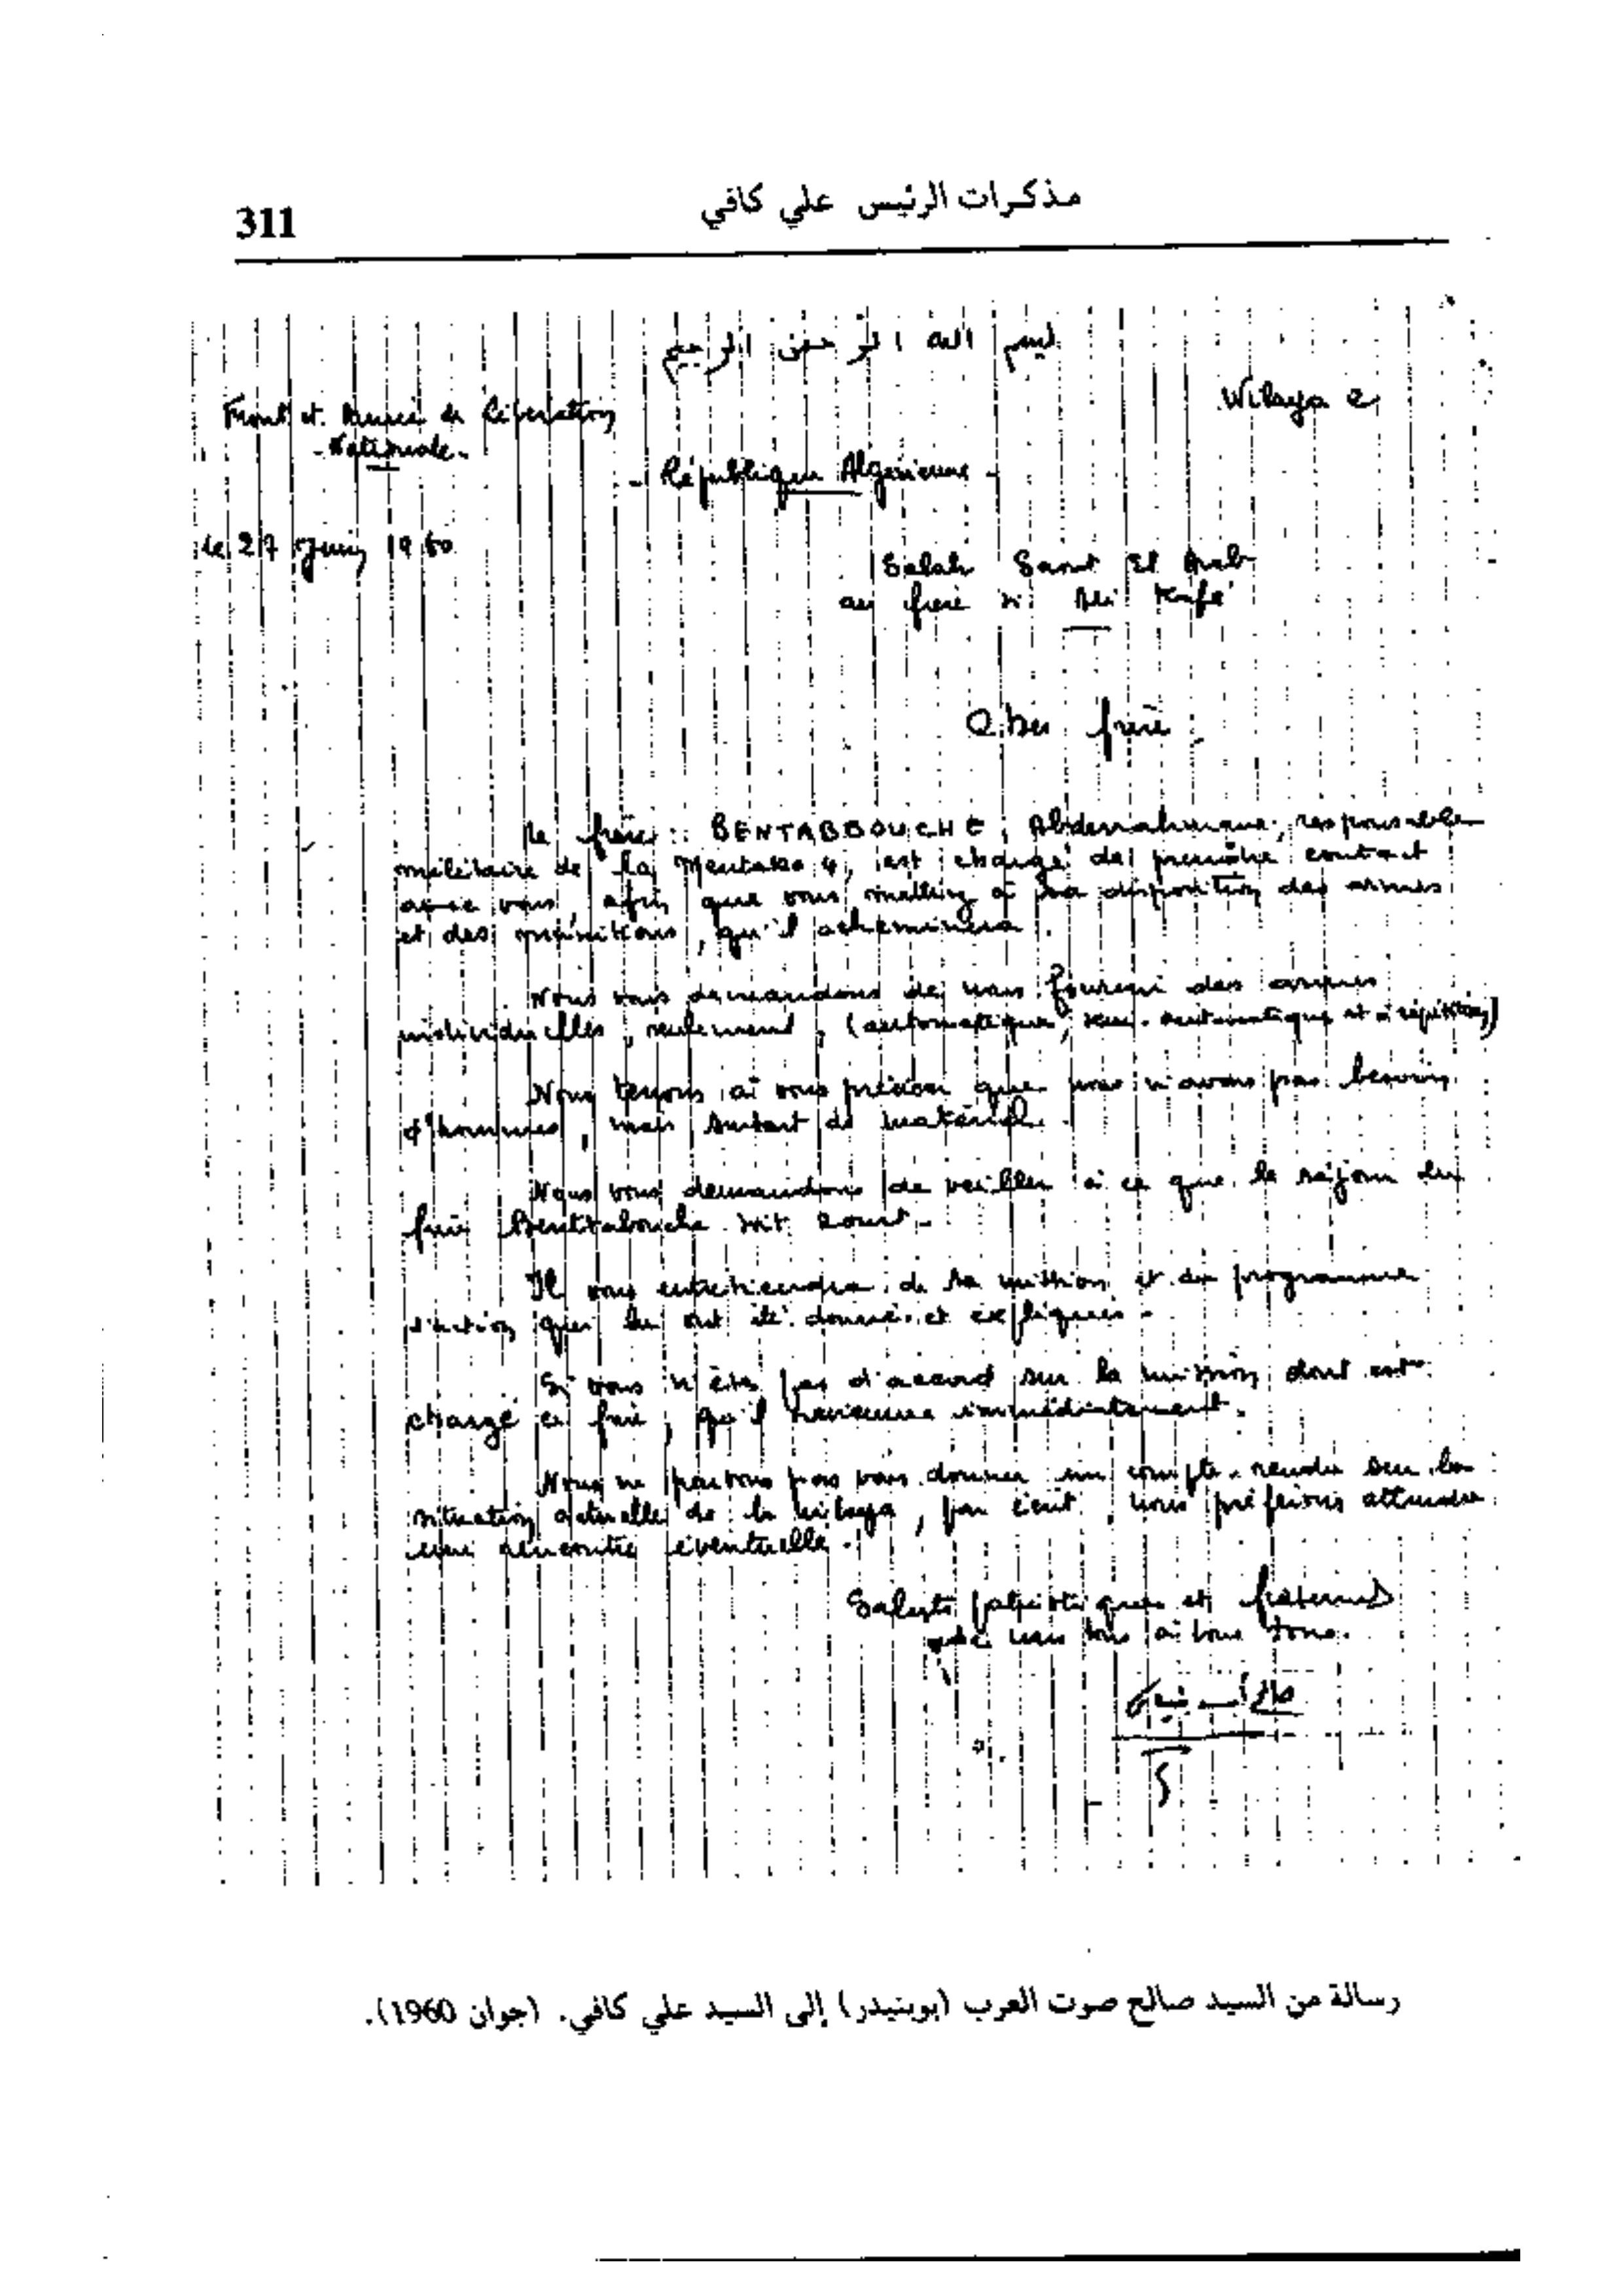 مذكرات الرئيس علي كافي
311
بسم الله الرحمن الرحيم
Wilaya 2
Front et Armée de Libération
- Nationale -
- République Algérienne -
le 27 Juin 1960
Salah Saout El Arab
au frère Si Ali Kafi
Cher frère
Le frère : BENTABBOUCHE, Abderrahmane, responsable
militaire de la 4, est chargé de prendre contact
avec vous, afin que vous mettiez à sa disposition des armes
et des munitions, qu'il acheminera.
Nous vous demandons de nous fournir des armes
individuelles, seulement, (automatique, semi-automatique et à répétition)
Nous tenons à vous préciser que nous n'avons pas besoin
d'hommes, mais surtout de matériel.
Nous vous demandons de veiller à ce que le séjour du
frère Bentabouche soit court.
Il vous entretiendra de sa mission et du programme
d'action qui lui ont été donnés et expliqués.
Si vous n'êtes pas d'accord sur la mission dont est
chargé ce frère, qu'il revienne immédiatement.
Nous ne pouvons pas vous donner un compte-rendu sur la
situation actuelle de la wilaya, par écrit, nous préférons attendre
une rencontre éventuelle.
Saluts patriotiques et fraternels
de nous tous à vous tous.
رسالة من السيد صالح صوت العرب (بوبنيدر) إلى السيد علي كافي. (جوان 1960).